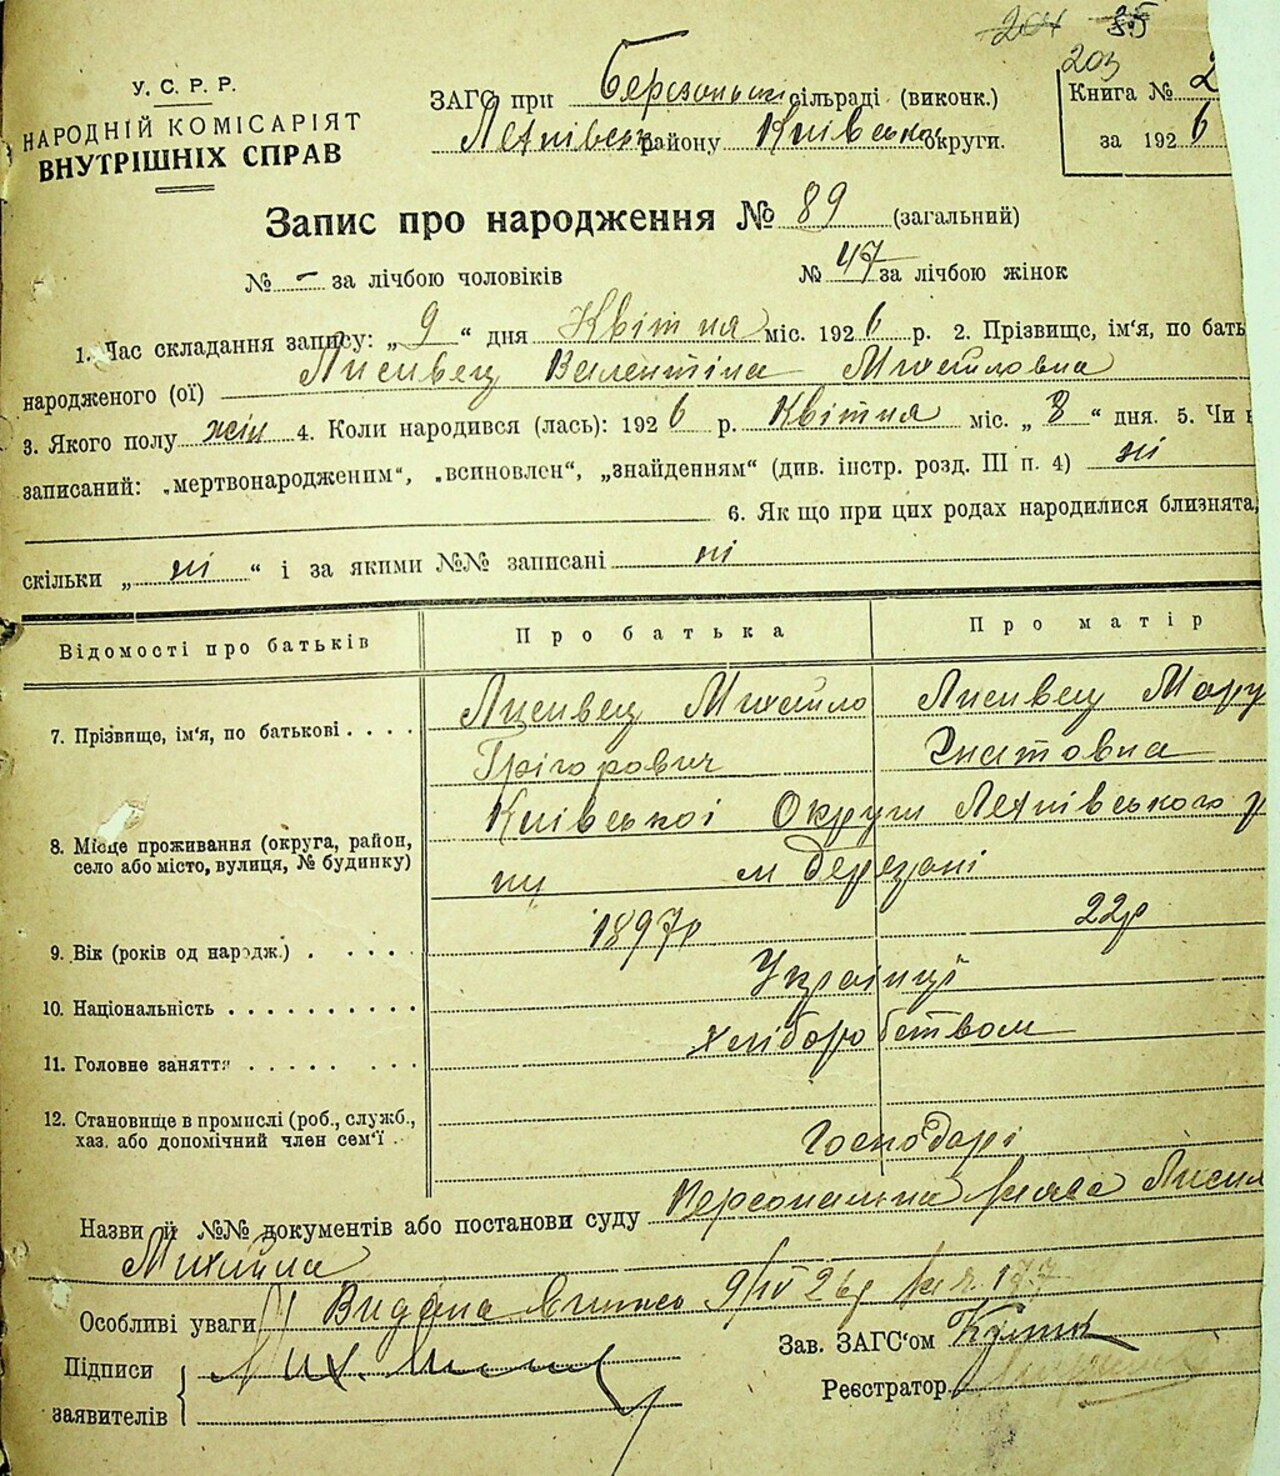 203
У. С. Р. Р.
НАРОДНІЙ КОМІСАРІЯТ
ВНУТРІШНІХ СПРАВ
ЗАГС при сільраді (виконк.)
району Київської округи.
Книга № 2
за 1926
Запис про народження № 89 (загальний)
№ – за лічбою чоловіків № 47 за лічбою жінок
1. Час складання запису: „ 9 “ дня Квітня міс. 1926 р. 2. Прізвище, ім‘я, по бать
народженого (ої) Лисивец Валентіна Михайловна
3. Якого полу жін 4. Коли народився (лась): 1926 р. Квітня міс. „ 8 “ дня. 5. Чи
записаний: „мертвонародженим“, „всиновлен“, „знайденням“ (див. інстр. розд. III п. 4) ні
6. Як що при цих родах народилися близнята,
скільки „ ні “ і за якими №№ записані ні
Відомості про батьків Про батька Про матір
7. Прізвище, ім‘я, по батькові . . . . Лисивец Михайло Лисивец
Грігорович Гнатовна
8. Місце проживання (округа, район, село або місто, вулиця, № будинку) Київської Округи
м Березані
9. Вік (років од народж.) . . . . . 1897р 22р
10. Національність . . . . . . . . . . Українці
11. Головне заняття . . . . . . . . хліборобством
12. Становище в промислі (роб., служб., хаз. або допомічний член сем‘ї . Господарі
Назви й №№ документів або постанови суду Персональна
Михайла
Особливі уваги Видана 9/IV 26р
Зав. ЗАГС‘ом
Підписи
заявителів
Мих.
Реєстратор